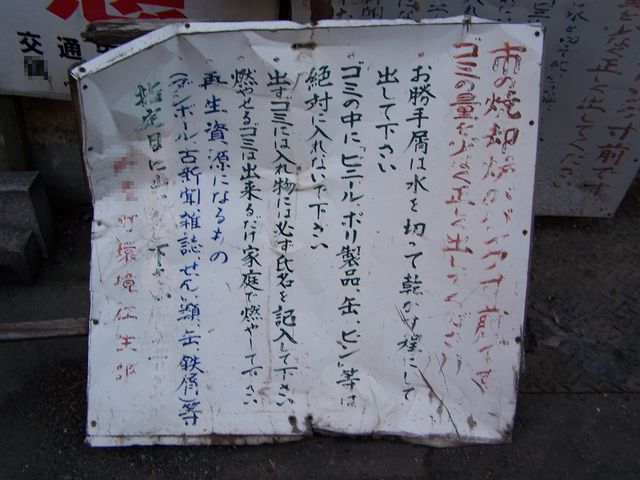 市の焼却炉がパンク寸前です
ゴミの量を少なく正しく出してください
お勝手屑は水を切って乾かす程にして
出して下さい
ゴミの中に「ビニールポリ製品、缶、ビン」等は
絶対に入れないで下さい
出すゴミには入れ物には必ず氏名を記入して下さい
燃やせるゴミは出来るだけ家庭で燃やして下さい
再生資源になるもの
(ダンボール古新聞雑誌、せんい類、缶、鉄屑)等
指定日に出して下さい
町環境衛生部
交通
寸前です
出してください